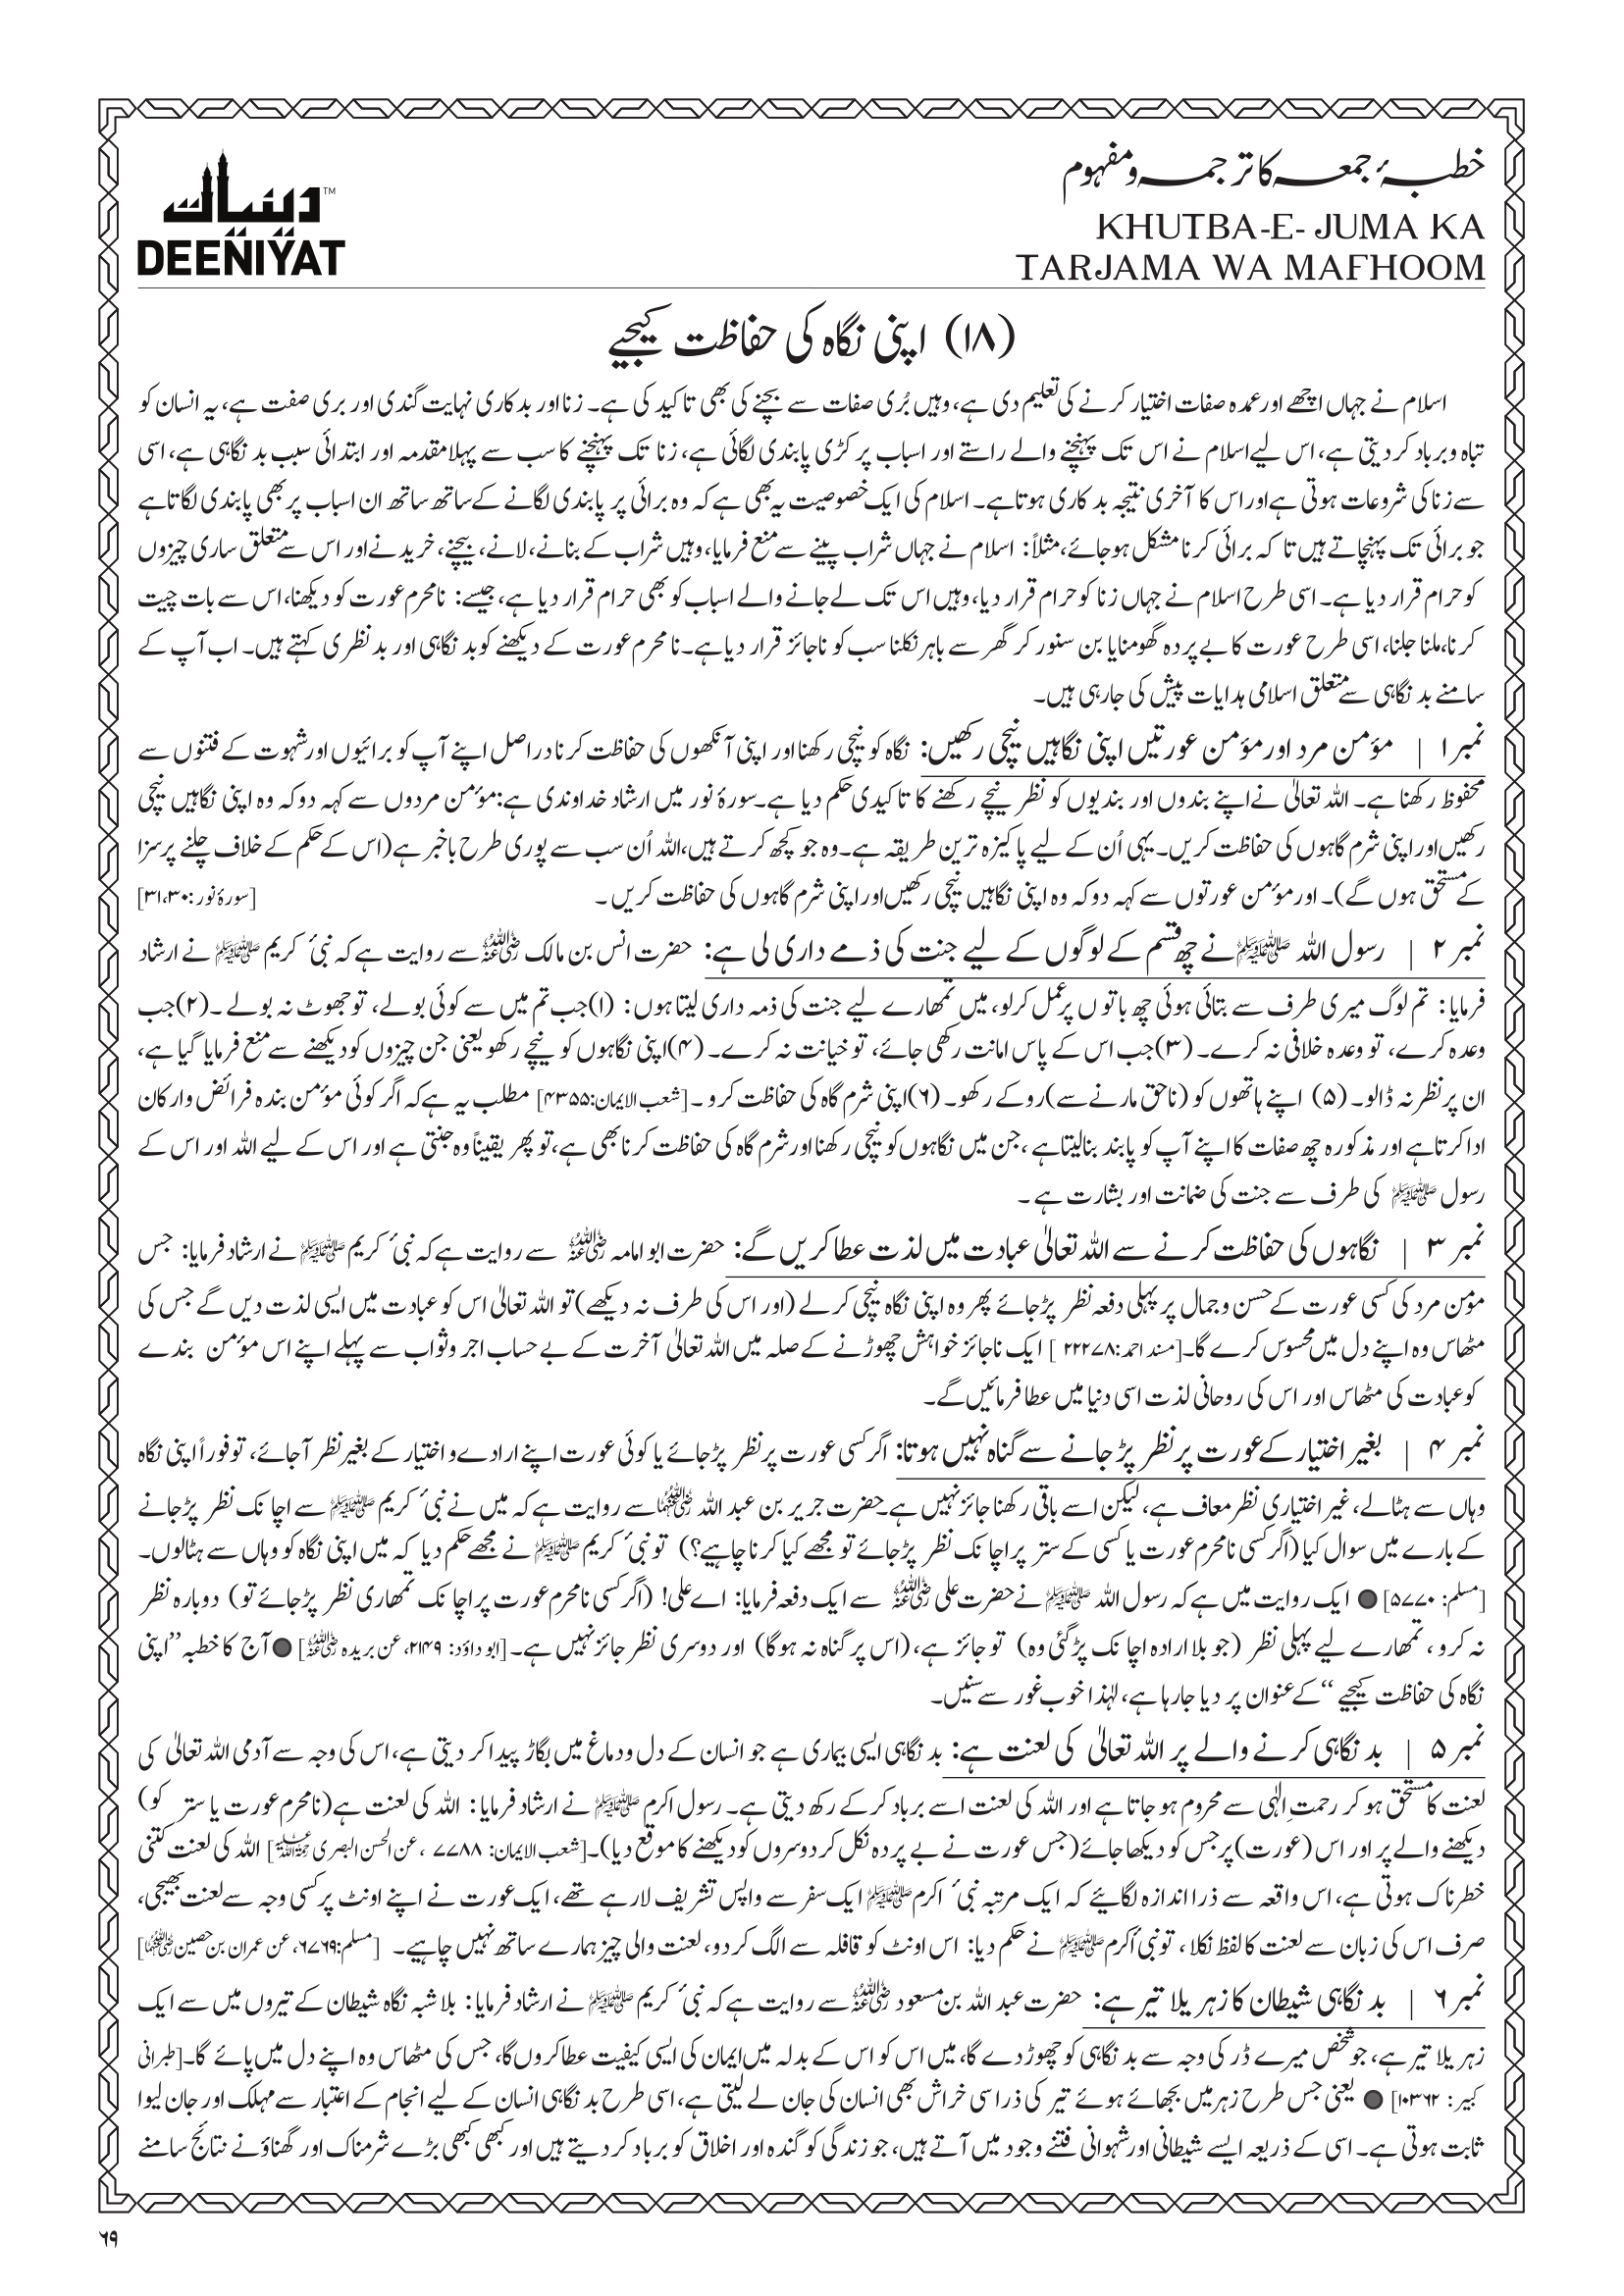 خطبۂ جمعہ کا ترجمہ و مفہوم
KHUTBA-E- JUMA KA
TARJAMA WA MAFHOOM
دینیات TM
DEENIYAT
(۱۸) اپنی نگاہ کی حفاظت کیجیے
اسلام نے جہاں اچھے اور عمدہ صفات اختیار کرنے کی تعلیم دی ہے، وہیں بُری صفات سے بچنے کی بھی تاکید کی ہے۔ زنا اور بدکاری نہایت گندی اور بری صفت ہے، یہ انسان کو
تباہ و برباد کر دیتی ہے، اس لیے اسلام نے اس تک پہنچنے والے راستے اور اسباب پر کڑی پابندی لگائی ہے، زنا تک پہنچنے کا سب سے پہلا مقدمہ اور ابتدائی سبب بدنگاہی ہے، اسی
سے زنا کی شروعات ہوتی ہے اور اس کا آخری نتیجہ بدکاری ہوتا ہے۔ اسلام کی ایک خصوصیت یہ بھی ہے کہ وہ برائی پر پابندی لگانے کے ساتھ ساتھ ان اسباب پر بھی پابندی لگاتا ہے
جو برائی تک پہنچاتے ہیں تا کہ برائی کرنا مشکل ہو جائے، مثلاً: اسلام نے جہاں شراب پینے سے منع فرمایا، وہیں شراب کے بنانے، لانے، بیچنے، خریدنے اور اس سے متعلق ساری چیزوں
کو حرام قرار دیا ہے۔ اسی طرح اسلام نے جہاں زنا کو حرام قرار دیا، وہیں اس تک لے جانے والے اسباب کو بھی حرام قرار دیا ہے، جیسے: نامحرم عورت کو دیکھنا، اس سے بات چیت
کرنا، ملنا جلنا، اسی طرح عورت کا بے پردہ گھومنا یا بن سنور کر گھر سے باہر نکلنا سب کو ناجائز قرار دیا ہے۔ نامحرم عورت کے دیکھنے کو بدنگاہی اور بدنظری کہتے ہیں۔ اب آپ کے
سامنے بدنگاہی سے متعلق اسلامی ہدایات پیش کی جا رہی ہیں۔
نمبر ۱ | مؤمن مرد اور مؤمن عورتیں اپنی نگاہیں نیچی رکھیں: نگاہ کو نیچی رکھنا اور اپنی آنکھوں کی حفاظت کرنا دراصل اپنے آپ کو برائیوں اور شہوت کے فتنوں سے
محفوظ رکھنا ہے۔ اللہ تعالیٰ نے اپنے بندوں اور بندیوں کو نظر نیچے رکھنے کا تاکیدی حکم دیا ہے۔ سورۂ نور میں ارشاد خداوندی ہے: مؤمن مردوں سے کہہ دو کہ وہ اپنی نگاہیں نیچی
رکھیں اور اپنی شرم گاہوں کی حفاظت کریں۔ یہی اُن کے لیے پاکیزہ ترین طریقہ ہے۔ وہ جو کچھ کرتے ہیں، اللہ اُن سب سے پوری طرح باخبر ہے (اس کے حکم کے خلاف چلنے پر سزا
کے مستحق ہوں گے)۔ اور مؤمن عورتوں سے کہہ دو کہ وہ اپنی نگاہیں نیچی رکھیں اور اپنی شرم گاہوں کی حفاظت کریں۔ [سورۂ نور: ۳۰، ۳۱]
نمبر ۲ | رسول اللہ ﷺ نے چھ قسم کے لوگوں کے لیے جنت کی ذمے داری لی ہے: حضرت انس بن مالک رضی اللہ عنہ سے روایت ہے کہ نبیٔ کریم ﷺ نے ارشاد
فرمایا: تم لوگ میری طرف سے بتائی ہوئی چھ باتوں پر عمل کر لو، میں تمھارے لیے جنت کی ذمہ داری لیتا ہوں: (۱) جب تم میں سے کوئی بولے، تو جھوٹ نہ بولے۔ (۲) جب
وعدہ کرے، تو وعدہ خلافی نہ کرے۔ (۳) جب اس کے پاس امانت رکھی جائے، تو خیانت نہ کرے۔ (۴) اپنی نگاہوں کو نیچے رکھو یعنی جن چیزوں کو دیکھنے سے منع فرمایا گیا ہے،
ان پر نظر نہ ڈالو۔ (۵) اپنے ہاتھوں کو (ناحق مارنے سے) روکے رکھو۔ (۶) اپنی شرم گاہ کی حفاظت کرو۔ [شعب الایمان: ۴۳۵۵] مطلب یہ ہے کہ اگر کوئی مؤمن بندہ فرائض و ارکان
ادا کرتا ہے اور مذکورہ چھ صفات کا اپنے آپ کو پابند بنا لیتا ہے، جن میں نگاہوں کو نیچی رکھنا اور شرم گاہ کی حفاظت کرنا بھی ہے، تو پھر یقیناً وہ جنتی ہے اور اس کے لیے اللہ اور اس کے
رسول ﷺ کی طرف سے جنت کی ضمانت اور بشارت ہے۔
نمبر ۳ | نگاہوں کی حفاظت کرنے سے اللہ تعالیٰ عبادت میں لذت عطا کریں گے: حضرت ابو امامہ رضی اللہ عنہ سے روایت ہے کہ نبیٔ کریم ﷺ نے ارشاد فرمایا: جس
مؤمن مرد کی کسی عورت کے حسن و جمال پر پہلی دفعہ نظر پڑ جائے پھر وہ اپنی نگاہ نیچی کر لے (اور اس کی طرف نہ دیکھے) تو اللہ تعالیٰ اس کو عبادت میں ایسی لذت دیں گے جس کی
مٹھاس وہ اپنے دل میں محسوس کرے گا۔ [مسند احمد: ۲۲۲۷۸] ایک ناجائز خواہش چھوڑنے کے صلہ میں اللہ تعالیٰ آخرت کے بے حساب اجر و ثواب سے پہلے اپنے اس مؤمن بندے
کو عبادت کی مٹھاس اور اس کی روحانی لذت اسی دنیا میں عطا فرمائیں گے۔
نمبر ۴ | بغیر اختیار کے عورت پر نظر پڑ جانے سے گناہ نہیں ہوتا: اگر کسی عورت پر نظر پڑ جائے یا کوئی عورت اپنے ارادے و اختیار کے بغیر نظر آ جائے، تو فوراً اپنی نگاہ
وہاں سے ہٹا لے، غیر اختیاری نظر معاف ہے، لیکن اسے باقی رکھنا جائز نہیں ہے۔ حضرت جریر بن عبد اللہ رضی اللہ عنہما سے روایت ہے کہ میں نے نبیٔ کریم ﷺ سے اچانک نظر پڑ جانے
کے بارے میں سوال کیا (اگر کسی نامحرم عورت یا کسی کے ستر پر اچانک نظر پڑ جائے تو مجھے کیا کرنا چاہیے؟) تو نبیٔ کریم ﷺ نے مجھے حکم دیا کہ میں اپنی نگاہ کو وہاں سے ہٹا لوں۔
[مسلم: ۵۷۷۰] ● ایک روایت میں ہے کہ رسول اللہ ﷺ نے حضرت علی رضی اللہ عنہ سے ایک دفعہ فرمایا: اے علی! (اگر کسی نامحرم عورت پر اچانک تمھاری نظر پڑ جائے تو) دوبارہ نظر
نہ کرو، تمھارے لیے پہلی نظر (جو بلا ارادہ اچانک پڑ گئی وہ) تو جائز ہے، (اس پر گناہ نہ ہوگا) اور دوسری نظر جائز نہیں ہے۔ [ابو داؤد: ۲۱۴۹، عن بریدہ رضی اللہ عنہ] ● آج کا خطبہ ”اپنی
نگاہ کی حفاظت کیجیے“ کے عنوان پر دیا جا رہا ہے، لہٰذا خوب غور سے سنیں۔
نمبر ۵ | بدنگاہی کرنے والے پر اللہ تعالیٰ کی لعنت ہے: بدنگاہی ایسی بیماری ہے جو انسان کے دل و دماغ میں بگاڑ پیدا کر دیتی ہے، اس کی وجہ سے آدمی اللہ تعالیٰ کی
لعنت کا مستحق ہو کر رحمتِ الٰہی سے محروم ہو جاتا ہے اور اللہ کی لعنت اسے برباد کر کے رکھ دیتی ہے۔ رسول اکرم ﷺ نے ارشاد فرمایا: اللہ کی لعنت ہے (نامحرم عورت یا ستر کو)
دیکھنے والے پر اور اس (عورت) پر جس کو دیکھا جائے (جس عورت نے بے پردہ نکل کر دوسروں کو دیکھنے کا موقع دیا)۔ [شعب الایمان: ۷۷۸۸، عن الحسن البصری رحمۃ اللہ علیہ] اللہ کی لعنت کتنی
خطرناک ہوتی ہے، اس واقعہ سے ذرا اندازہ لگائیے کہ ایک مرتبہ نبیٔ اکرم ﷺ ایک سفر سے واپس تشریف لا رہے تھے، ایک عورت نے اپنے اونٹ پر کسی وجہ سے لعنت بھیجی،
صرف اس کی زبان سے لعنت کا لفظ نکلا، تو نبیٔ اکرم ﷺ نے حکم دیا: اس اونٹ کو قافلہ سے الگ کر دو، لعنت والی چیز ہمارے ساتھ نہیں چاہیے۔ [مسلم: ۶۷۶۹، عن عمران بن حصین رضی اللہ عنہما]
نمبر ۶ | بدنگاہی شیطان کا زہریلا تیر ہے: حضرت عبد اللہ بن مسعود رضی اللہ عنہ سے روایت ہے کہ نبیٔ کریم ﷺ نے ارشاد فرمایا: بلا شبہ نگاہ شیطان کے تیروں میں سے ایک
زہریلا تیر ہے، جو شخص میرے ڈر کی وجہ سے بدنگاہی کو چھوڑ دے گا، میں اس کو اس کے بدلہ میں ایمان کی ایسی کیفیت عطا کروں گا، جس کی مٹھاس وہ اپنے دل میں پائے گا۔ [طبرانی
کبیر: ۱۰۳۶۲] ● یعنی جس طرح زہر میں بجھائے ہوئے تیر کی ذرا سی خراش بھی انسان کی جان لے لیتی ہے، اسی طرح بدنگاہی انسان کے لیے انجام کے اعتبار سے مہلک اور جان لیوا
ثابت ہوتی ہے۔ اسی کے ذریعہ ایسے شیطانی اور شہوانی فتنے وجود میں آتے ہیں، جو زندگی کو گندہ اور اخلاق کو برباد کر دیتے ہیں اور کبھی کبھی بڑے شرمناک اور گھناؤنے نتائج سامنے
۶۹